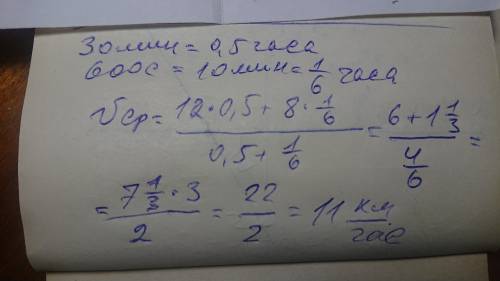 30мин = 0,5 часа
600с = 10мин = 1/6 часа
Vср = (12·0,5 + 8·1/6)/(0,5 + 1/6) = (6 + 1 1/3)/(4/6) =
= (7 1/3 · 3)/2 = 22/2 = 11 км/час